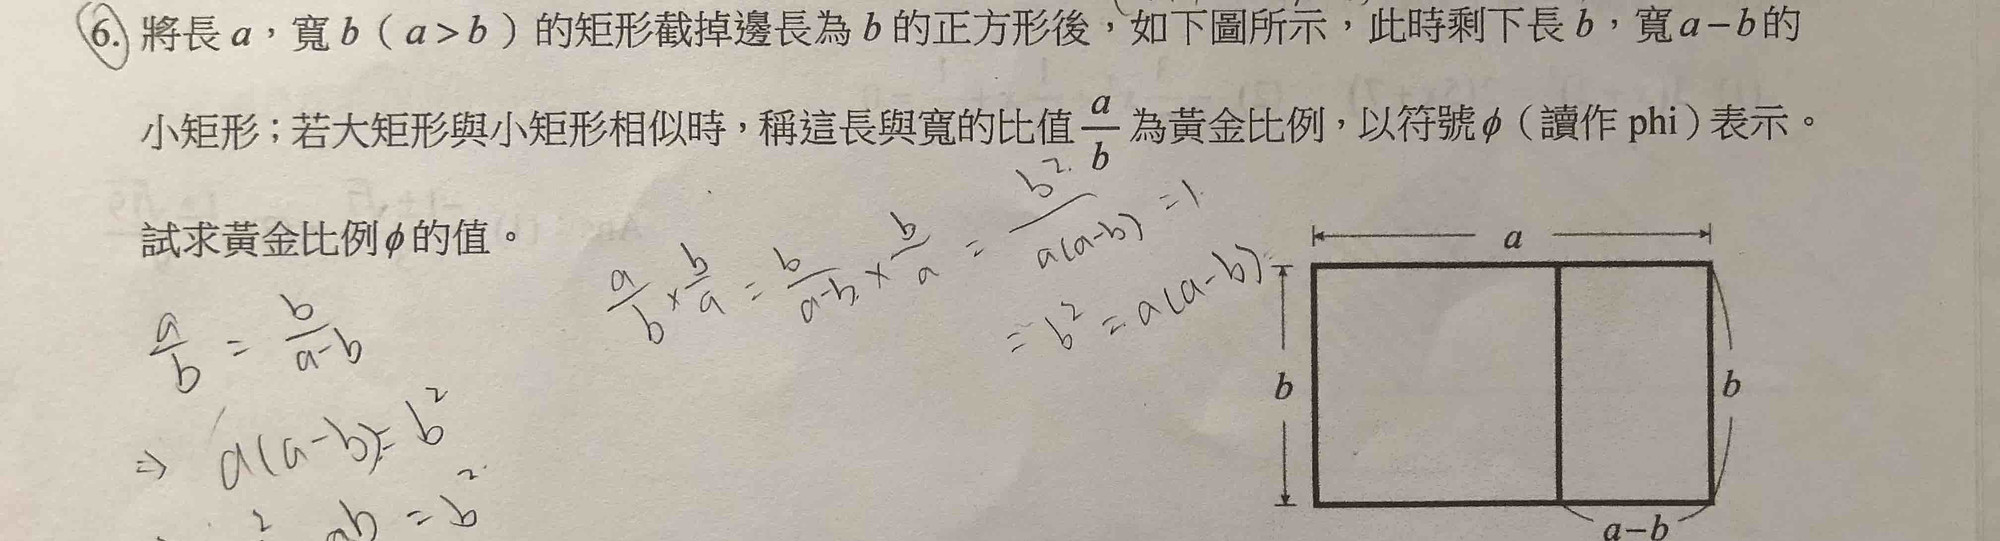 6. 將長 a，寬 b（a > b）的矩形截掉邊長為 b 的正方形後，如下圖所示，此時剩下長 b，寬 a − b 的
小矩形；若大矩形與小矩形相似時，稱這長與寬的比值 a/b 為黃金比例，以符號 ϕ（讀作 phi）表示。
試求黃金比例 ϕ 的值。
a/b × b/a = b/(a-b) × b/a = b²/(a(a-b)) = 1
= b² = a(a-b)
a/b = b/(a-b)
⇒ a(a-b) = b²
² ab = b²
a
b
b
a−b